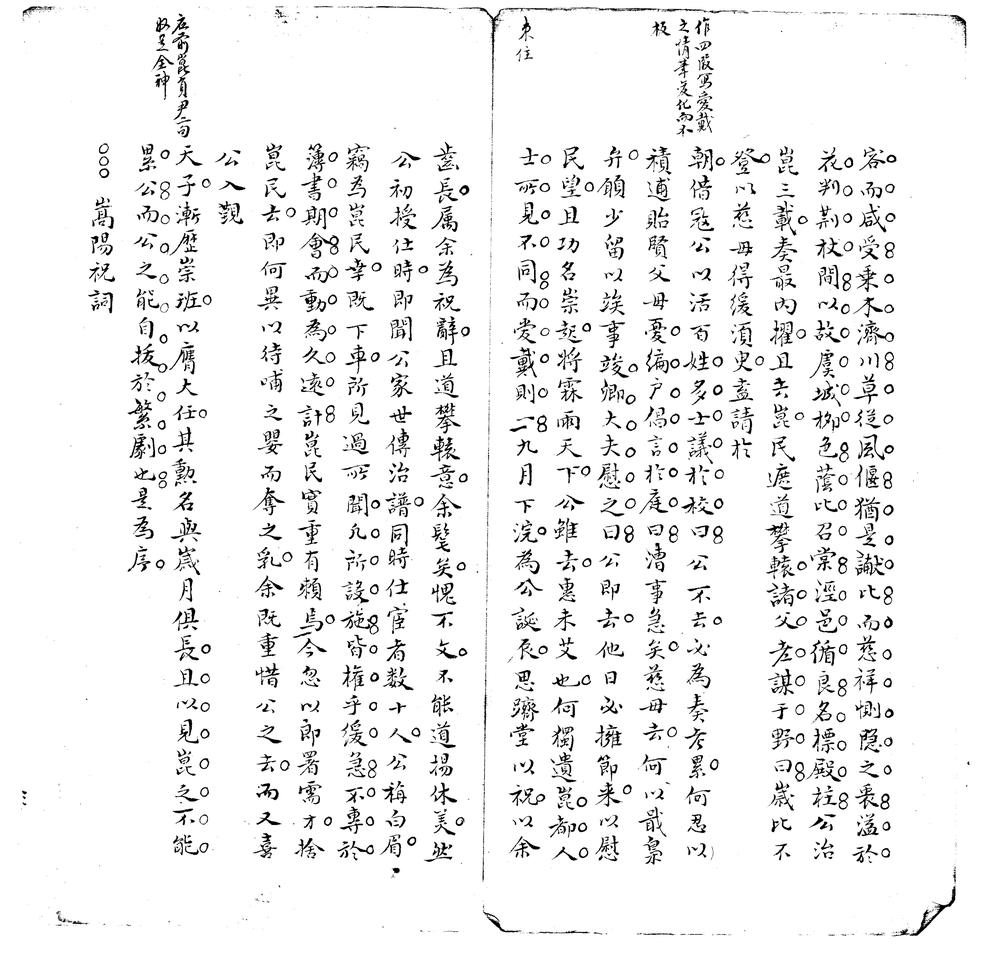 作四段寫愛戴
之情筆筆變化而不
板
東住
容而咸受乘木濟川草從風偃猶是讞比而慈祥惻隐之衷溢於
花判荆杖間以故虞城栁色蔭比召棠溼邑循良名標殿柱公治
崑三載奏最內擢且去崑民遮道攀轅諸父老謀于野曰嵗比不
登以慈母得緩湏臾盍請於
朝借寇公以活百姓多士議於校曰公不去必為奏考累何忍以
積逋貽賢父母憂編户倡言於庭曰漕事急矣慈母去何以戢梟
弁願少留以竢事竣卿大夫慰之曰公即去他日必擁節来以慰
民望且功名崇起将霖雨天下公雖去惠未艾也何獨遺崑都人
士所見不同而爱戴則一九月下浣為公誕辰思躋堂以祝以余
齒長属余為祝辭且道攀轅意余髦矣愧不文不能道揚休美然
公初授仕時即聞公家世傳治譜同時仕宦者数十人公稱白眉
竊為崑民幸既下車所見過所聞凡所設施皆權乎緩急不專於
簿書期會而動為久遠計崑民實重有賴焉今忽以郎署需才捨
崑民去即何異以待哺之嬰而奪之乳余既重惜公之去而又喜
公入覲
天子漸歷崇班以膺大任其勲名與嵗月俱長且以見崑之不能
累公而公之能自拔於繁劇也是為序
右前崑負尹二句
收足全神
○○○嵩陽祝詞